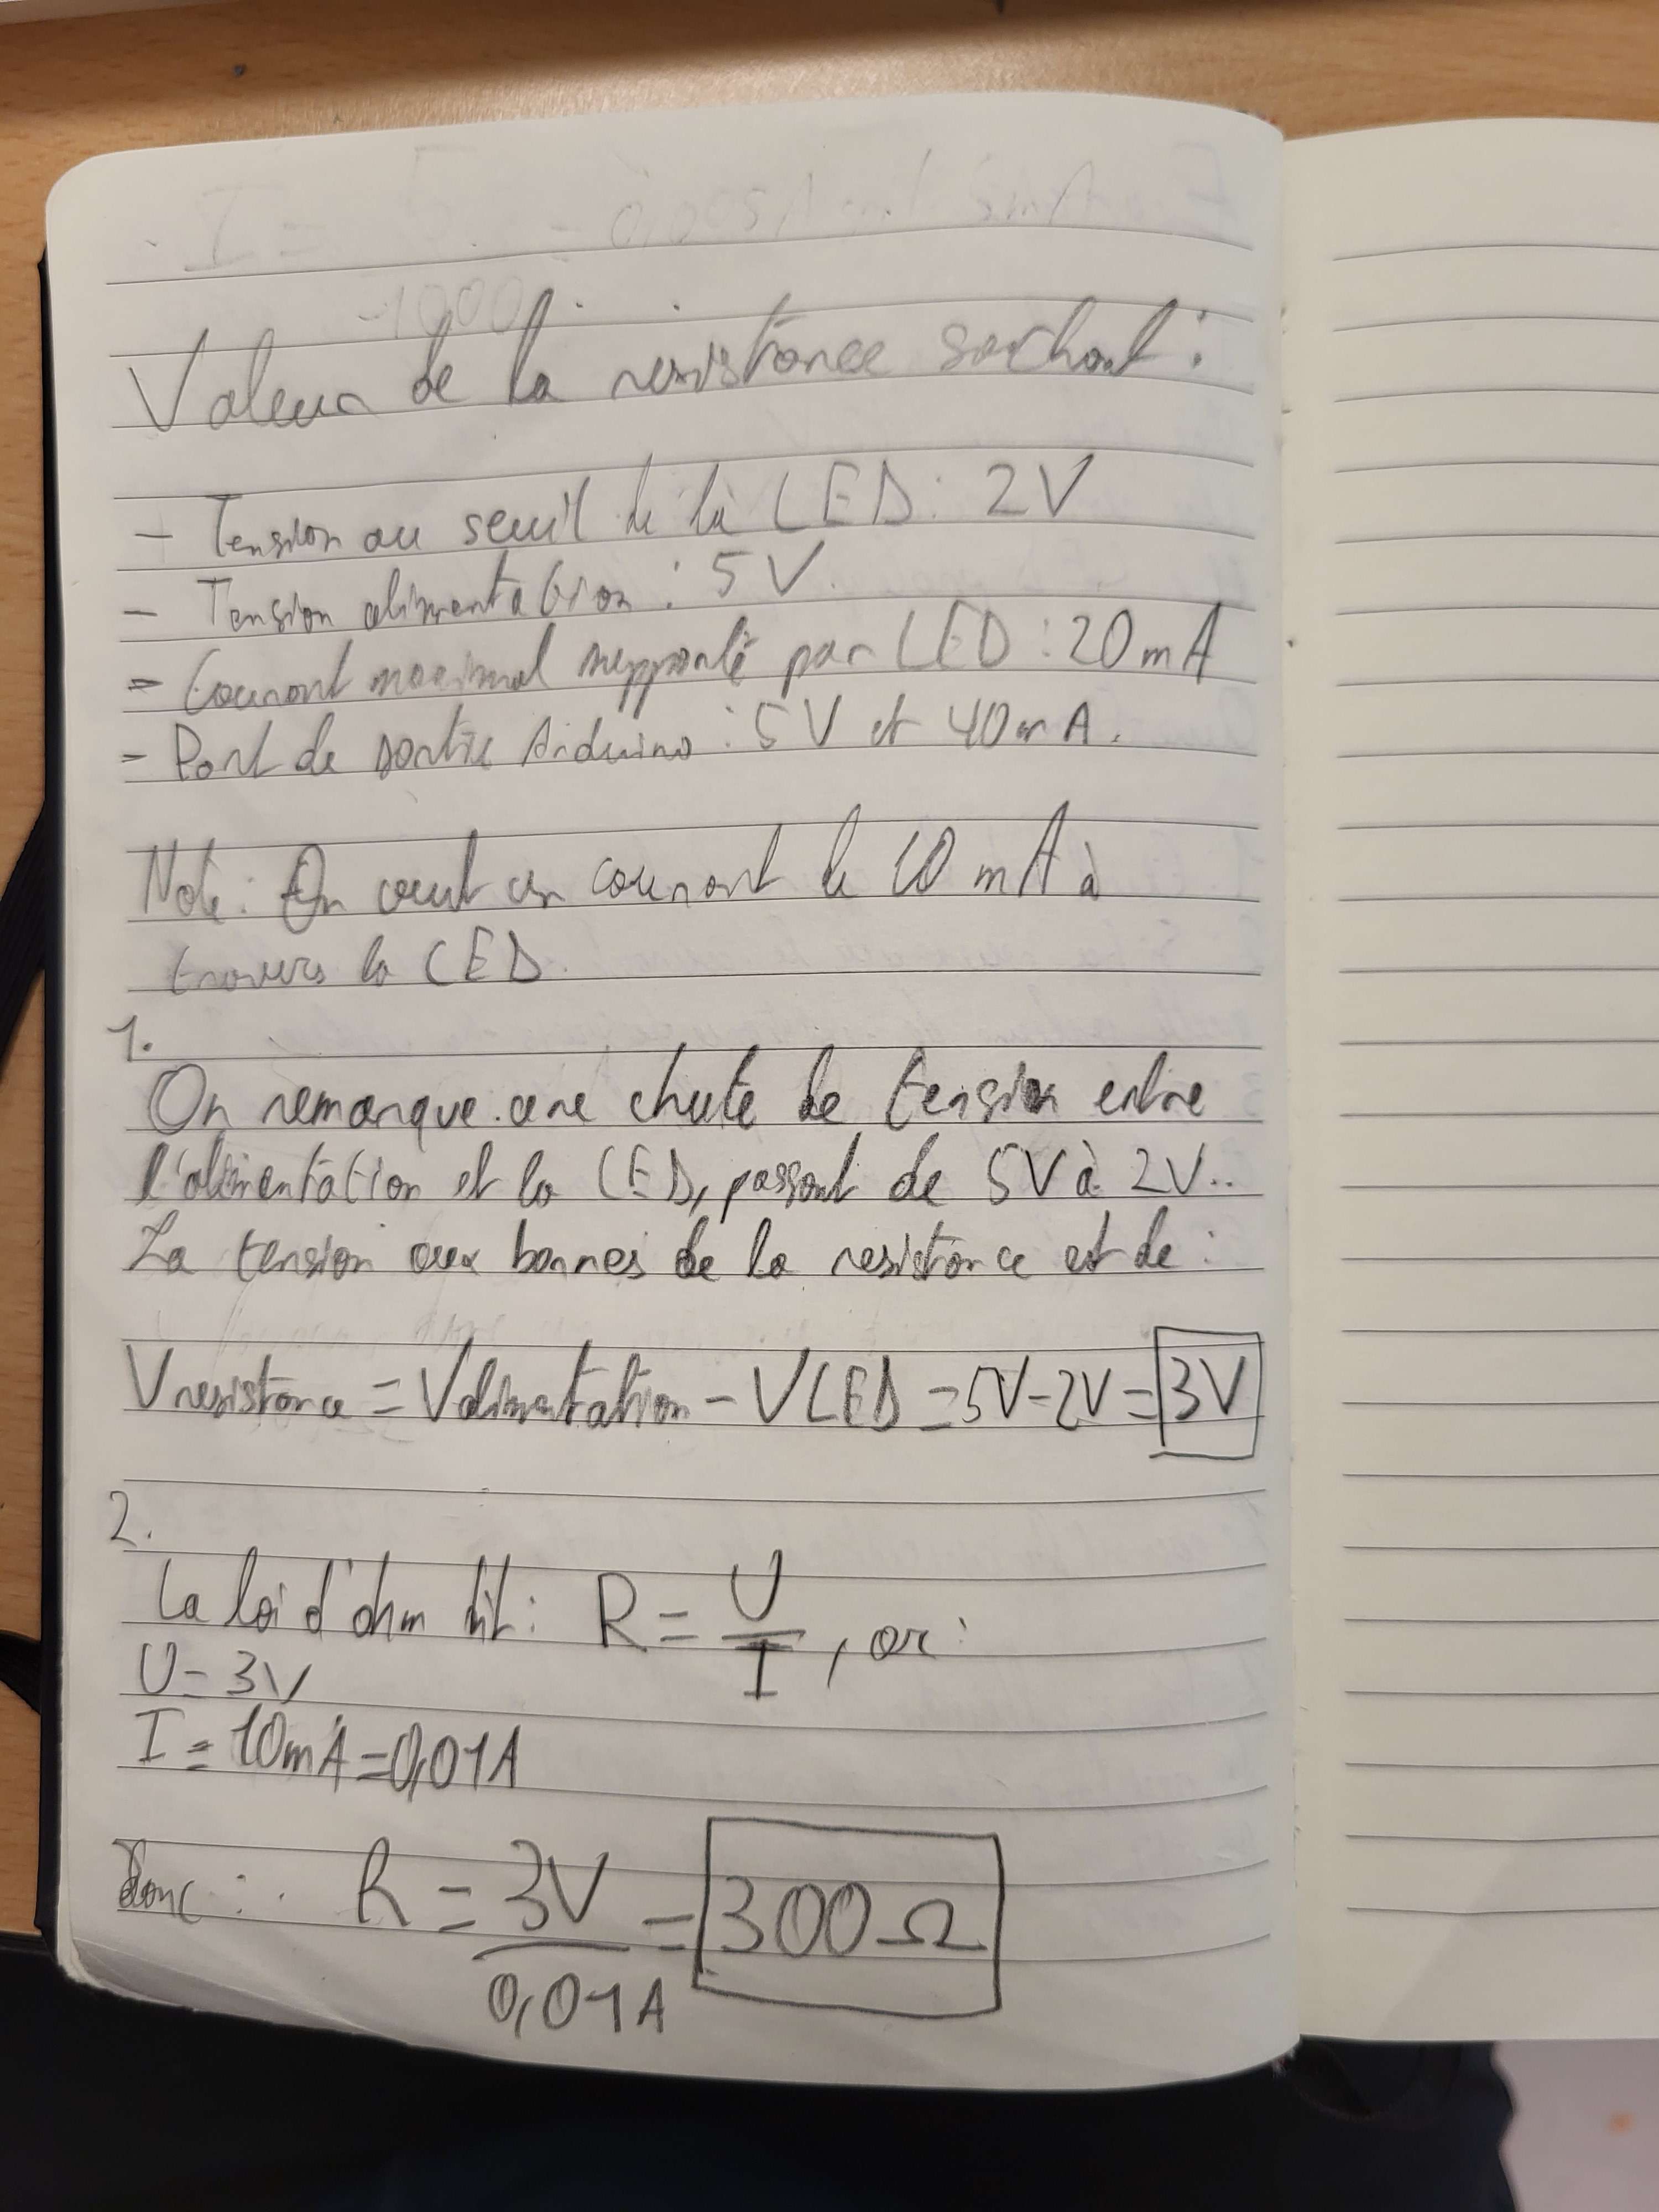 Valeur de la resistance sachant :
- Tension au seuil de la LED : 2V
- Tension alimentation : 5V.
- Courant maximal supporté par LED : 20mA
- Port de sortie Arduino : 5V et 40mA.
Note : On veut un courant de 10 mA à
travers la LED.
1.
On remarque une chute de tension entre
l'alimentation et la LED, passant de 5V à 2V..
La tension aux bornes de la resistance est de :
Vresistance = Valimentation - VLED = 5V-2V = 3V
2.
La loi d'ohm dit : R = U/I, or :
U = 3V
I = 10mA = 0,01A
donc : R = 3V/0,01A = 300Ω